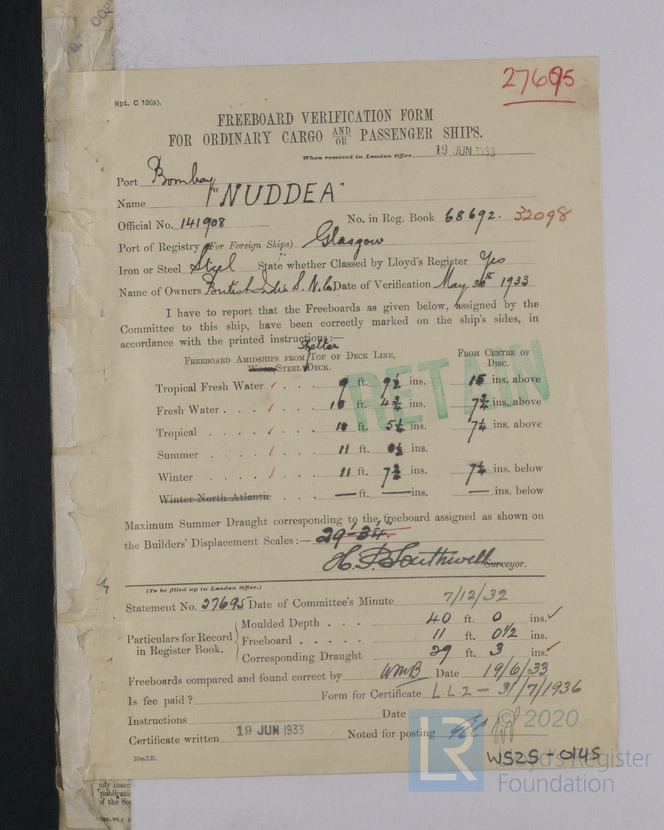 27695
Rpt. C 12(a).
FREEBOARD VERIFICATION FORM
FOR ORDINARY CARGO AND OR PASSENGER SHIPS.
When received in London Office 19 JUN 1933
Port Bombay
Name "NUDDEA"
Official No. 141908 No. in Reg. Book 68692. 32098
Port of Registry (For Foreign Ships) Glasgow
Iron or Steel Steel State whether Classed by Lloyd's Register Yes
Name of Owners British India S. N. Co Date of Verification May 30th 1933
I have to report that the Freeboards as given below, assigned by the
Committee to this ship, have been correctly marked on the ship's sides, in
accordance with the printed instructions:—
Shelter
FREEBOARD AMIDSHIPS FROM TOP OF DECK LINE, FROM CENTRE OF
Wood/STEEL DECK. DISC.
Tropical Fresh Water 9 ft. 9½ ins. 15 ins. above
Fresh Water . . . . 10 ft. 4¾ ins. 7¾ ins. above
Tropical . . . . . 10 ft. 5¼ ins. 7¼ ins. above
Summer . . . . . 11 ft. 0½ ins.
Winter . . . . . 11 ft. 7¾ ins. 7¼ ins. below
Winter North Atlantic . . . — ft. — ins. — ins. below
RETAIN
Maximum Summer Draught corresponding to the freeboard assigned as shown on
the Builders' Displacement Scales :— 29'-3¼"
H. P. Southwell Surveyor.
(To be filled up in London Office.)
Statement No. 27695 Date of Committee's Minute 7/12/32
Particulars for Record in Register Book.
Moulded Depth . . . 40 ft. 0 ins.
Freeboard . . . . . 11 ft. 0½ ins.
Corresponding Draught 29 ft. 3 ins.
Freeboards compared and found correct by WMB Date 19/6/33
Is fee paid? Form for Certificate L.L.2 — 31/7/1936
Instructions Date
Certificate written 19 JUN 1933 Noted for posting
10m.7.31.
© 2020
W525-0145
LR Lloyd's Register
Foundation